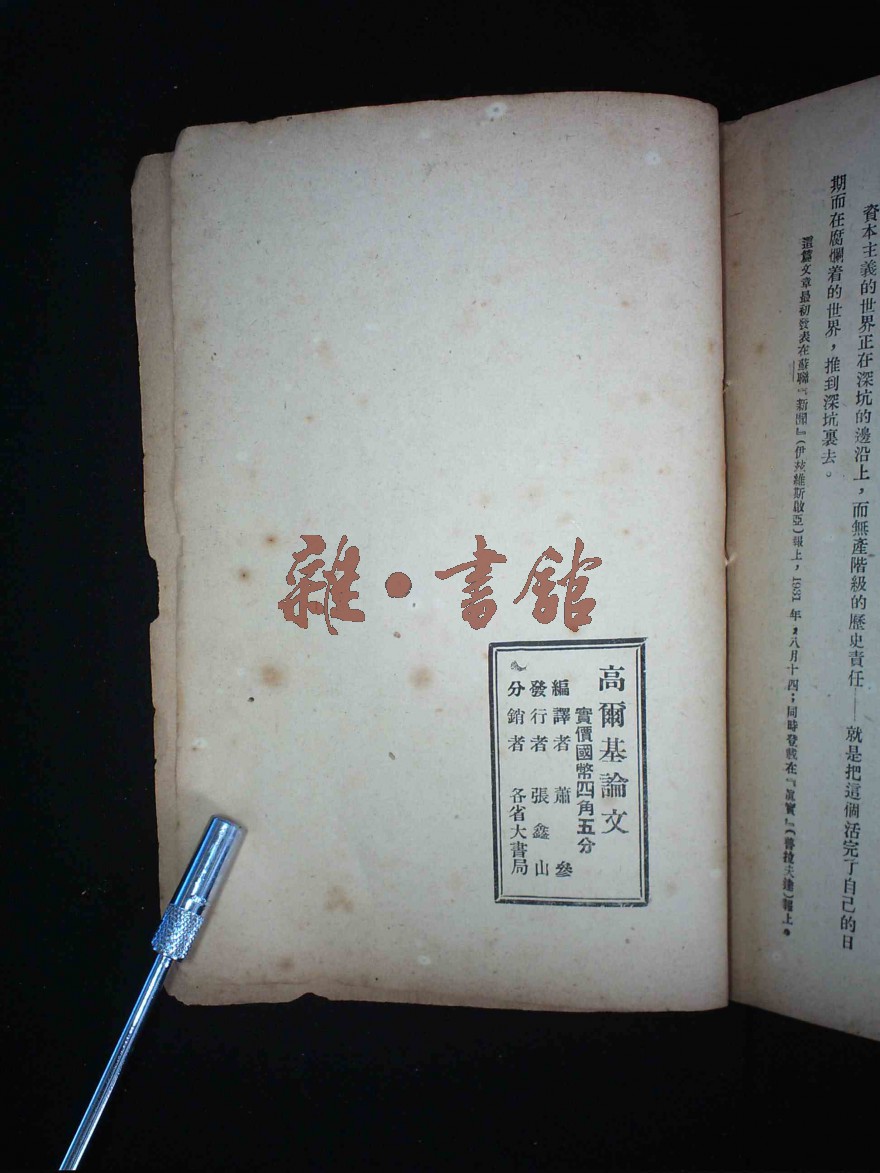 資本主義的世界正在深坑的邊沿上，而無產階級的歷史責任——就是把這個活完了自己的日
期而在腐爛着的世界，推到深坑裏去。
這篇文章最初發表在蘇聯『新聞』（伊茲維斯啟亞）報上，1931年，八月十四；同時登載在『眞實』（普拉夫達）報上。
高爾基論文
實價國幣四角五分
編譯者 蕭參
發行者 張鑫山
分銷者 各省大書局
雜·書館